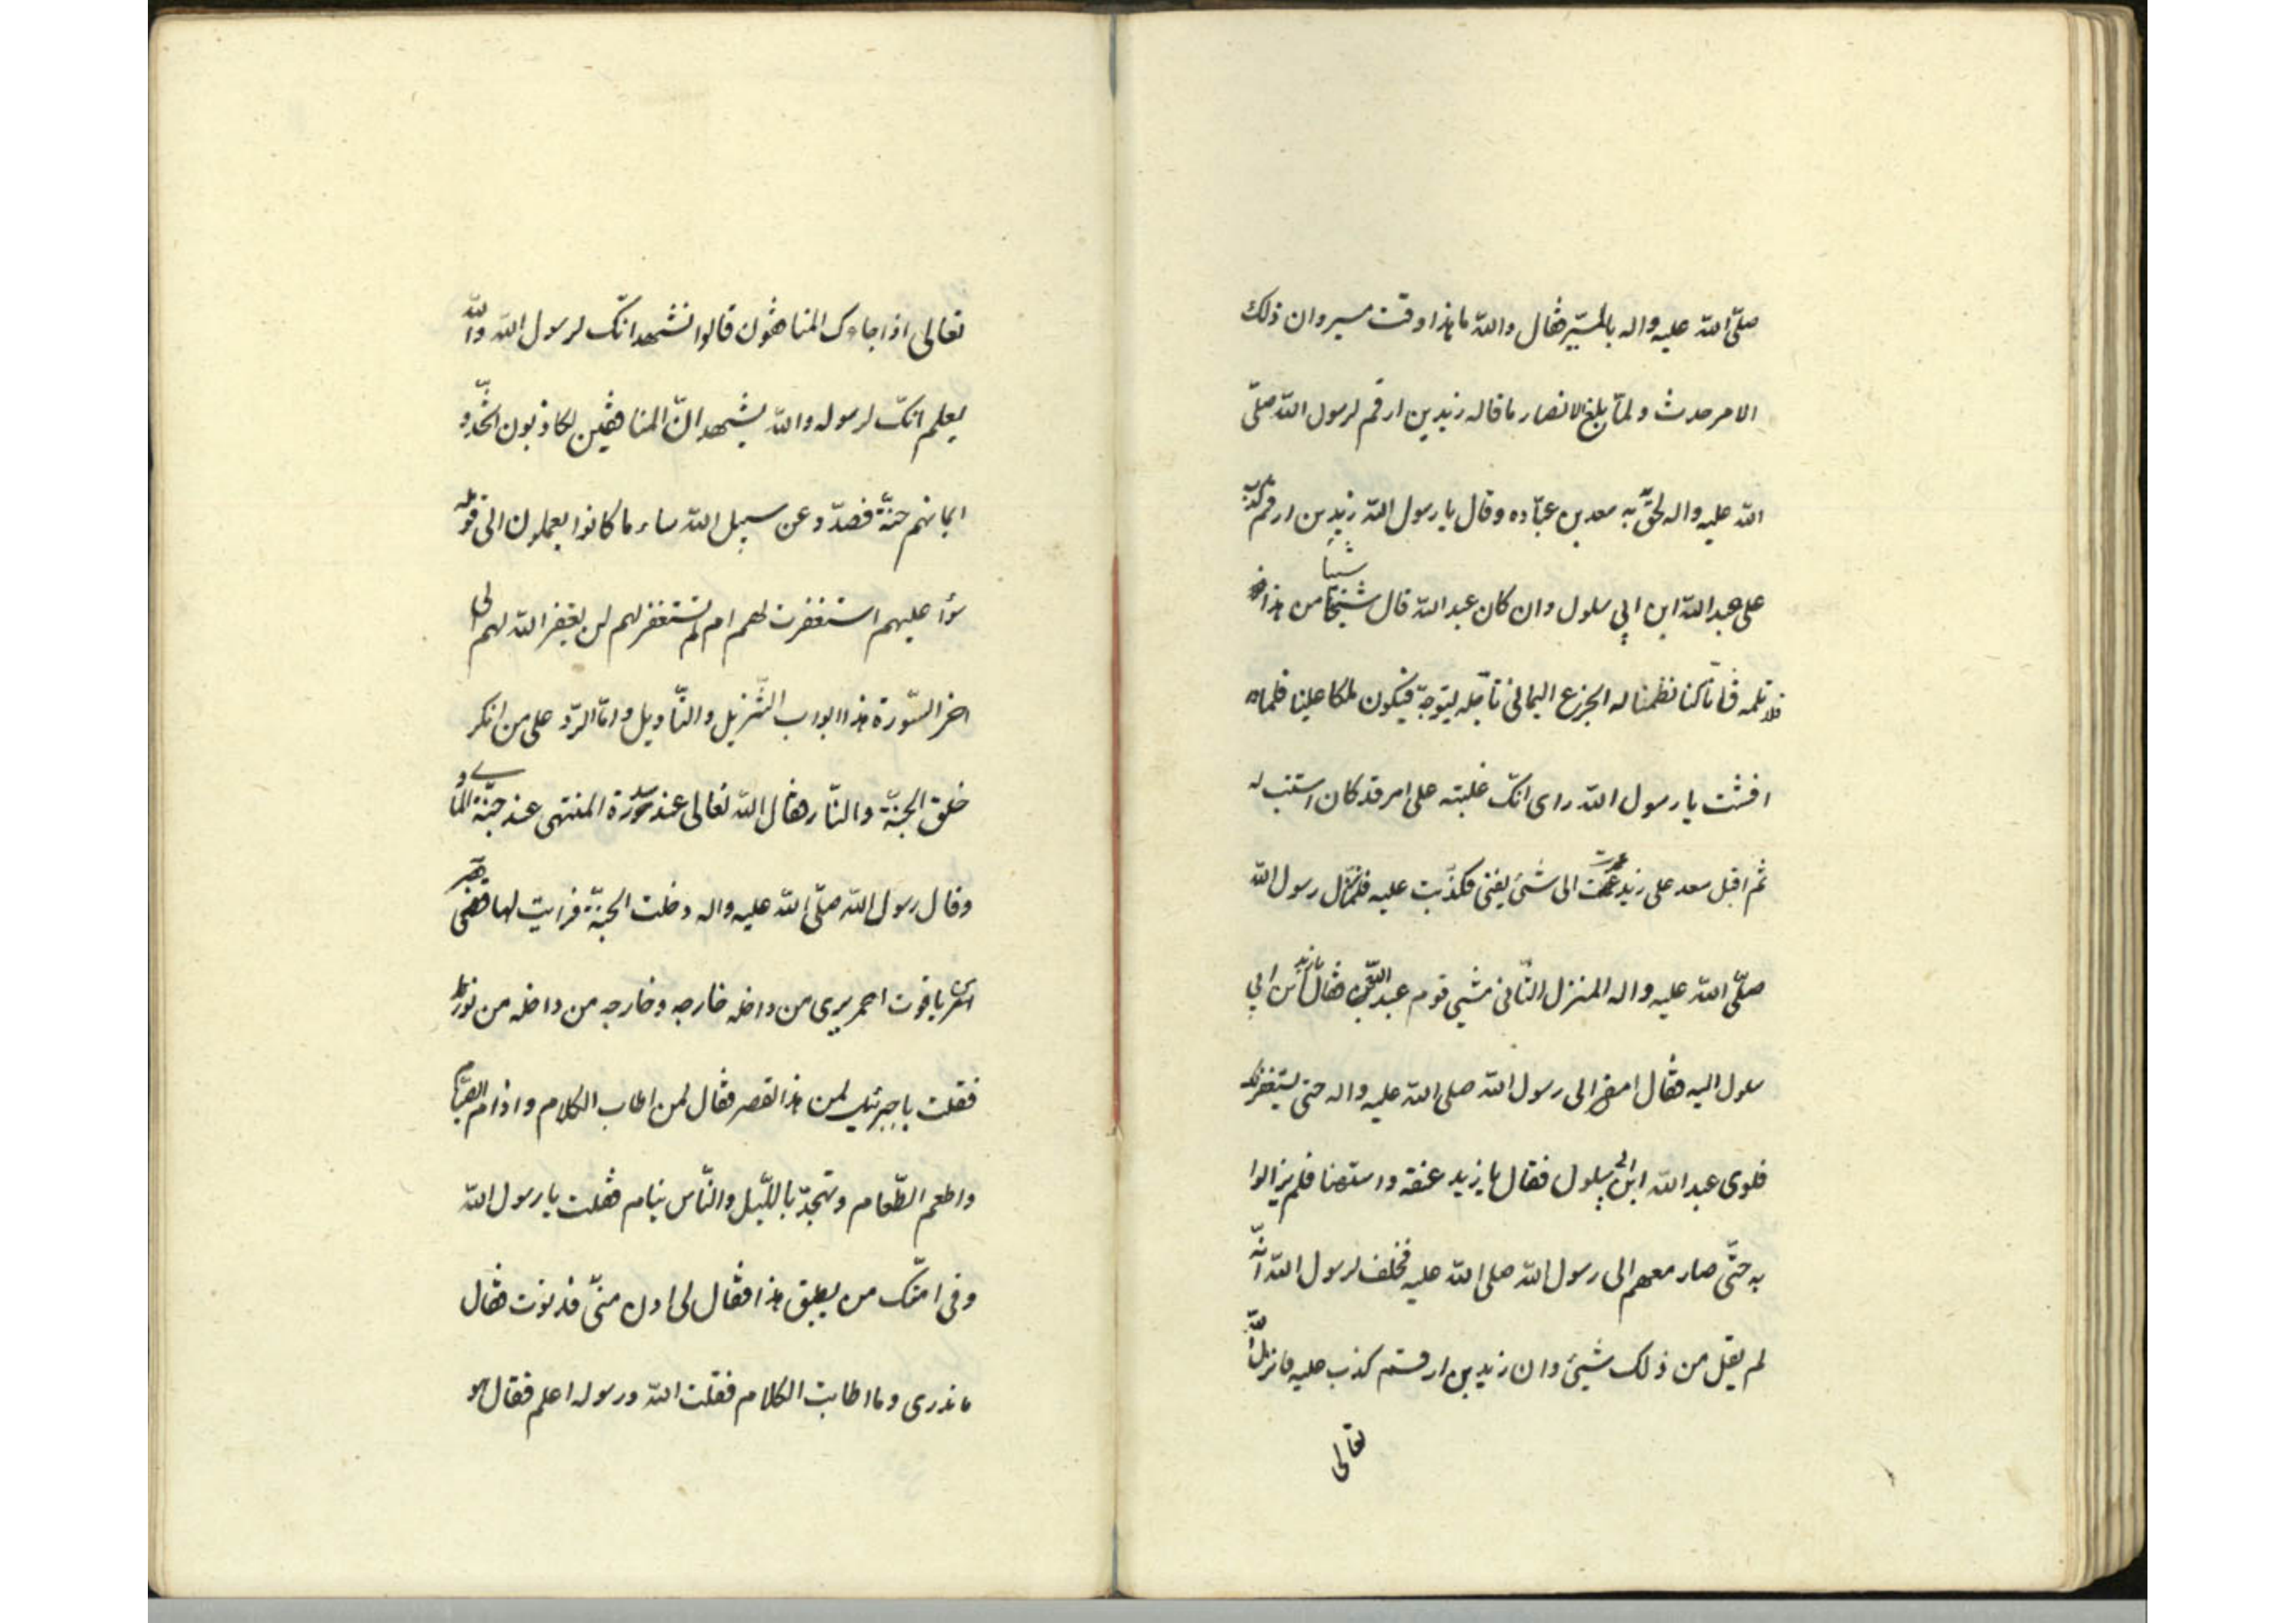 صلّى الله عليه واله بالمسيّر فقال والله ما هذا وقت مسير وان ذلك
الامر حدث ولمّا بلغ الانصار ما قاله زيد بن ارقم لرسول الله صلّى
الله عليه واله لحق به سعد بن عبّاده وقال يا رسول الله زيد بن ارقم كذب
على عبد الله ابن ابي سلول وان كان عبد الله قال شيئا من هذا
فلا تلمه فانّا كنا نظمنا له الجزع اليماني تاجله ليتوجّ فيكون ملكا علينا فلماه
افشت يا رسول الله راى انّك غلبته على امر قد كان استتب له
ثم اقبل سعد على زيد عمدت الى شئ يفنى فكذّبت عليه فلمّا نزل رسول الله
صلّى الله عليه واله المنزل الثّانى مشى قوم عبد الله فقال ابن ابي
سلول اليه فقال امض الى رسول الله صلى الله عليه واله حتى يستغفر لك
فلوى عبد الله ابن ابي سلول فقال يا زيد عنقه واستهنا فلم يزالوا
به حتّى صار معهم الى رسول الله صلى الله عليه فحلف لرسول الله انّه
لم يقل من ذلك شيئ وان زيد بن ارقم كذب عليه فانزل الله
تعالى
تعالى اذا جاءك المنافقون قالوا نشهد انّك لرسول الله والله
يعلم انّك لرسوله والله يشهد انّ المنافقين لكاذبون اتّخذو
ايمانهم جنّة فصدّو عن سبيل الله ساء ما كانوا يعملون الى قوله
سؤا عليهم استغفرت لهم ام لم تستغفر لهم لن يغفر الله لهم الى
اخر السّورة هذا ابواب التّنزيل والتّاويل وامّا الرّد على من انكر
خلق الجنّة والنّار فقال الله تعالى عند سدرة المنتهى عند جنّة الماوى
وقال رسول الله صلّى الله عليه واله دخلت الجنّة فرايت لها قصر
من ياقوت احمر يرى من داخله خارجه وخارجه من داخله من نوره
فقلت يا جبرئيل لمن هذا القصر فقال لمن اطاب الكلام وادام الصّيام
واطعم الطّعام وتهجّد باللّيل والنّاس نيام فقلت يا رسول الله
وفى امّتك من يطيق هذا فقال لى ادن منّى فدنوت فقال
ما تدرى وما اطابت الكلام فقلت الله ورسوله اعلم فقال هو